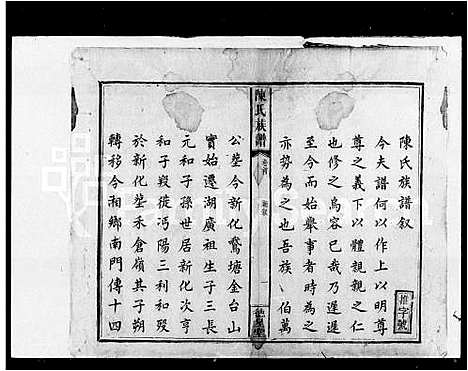 陳氏族譜叙
今夫譜何以作上以明尊
尊之義下以體親親之仁
也修之烏容已哉乃遲遲
至今而始舉事者時為之
亦勢為之也吾族丶伯萬
權字號
陳氏族譜
卷首
公塋今新化鶩塘金台山
實始遷湖廣祖生子三長
元和子孫世居新化次亨
和子叚徙沔陽三利和殁
於新化塋禾倉嶺其子朔
轉移今湘鄉南門傳十四